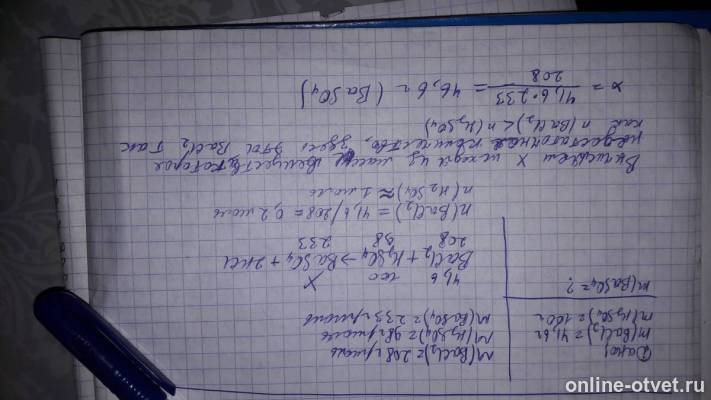 Дано:
m(BaCl₂) = 41,6г
m(H₂SO₄) = 100г
m(BaSO₄ = ?
M(BaCl₂) = 208 г/моль
M(H₂SO₄) = 98 г/моль
M(BaSO₄) = 233 г/моль
41,6 100 X
BaCl₂ + H₂SO₄ → BaSO₄ + 2HCl
208 98 233
n(BaCl₂) = 41,6/208 = 0,2 моль
n(H₂SO₄) ≈ 1 моль
Вычисляем X исходя из массы вещества, которое
недостаточное количество, здесь это BaCl₂ Так
как n(BaCl₂) < n(H₂SO₄)
x = 41,6·233 / 208 = 46,6г (BaSO₄)
online-otvet.ru